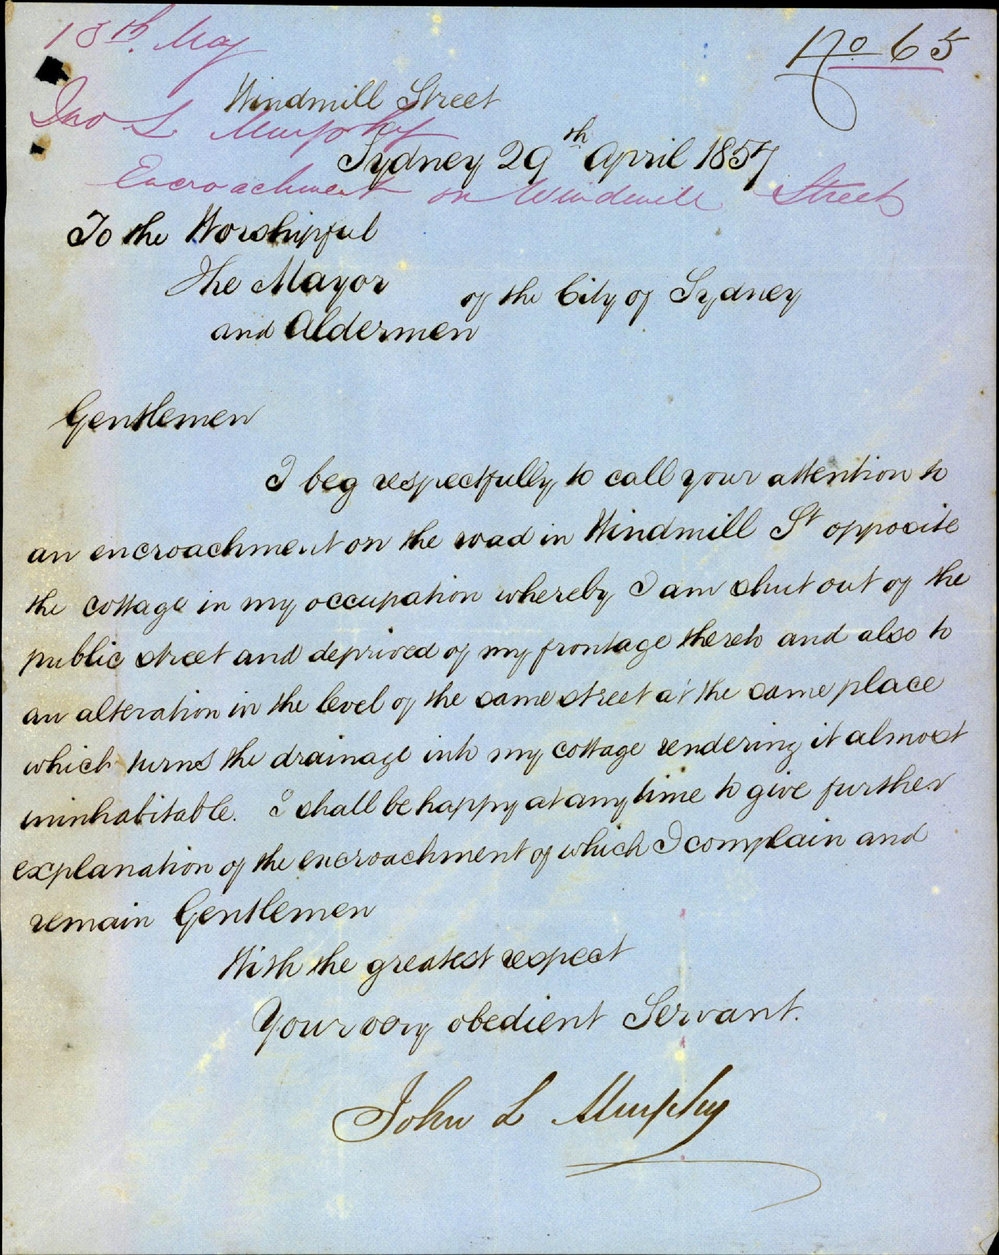 13th. May
No 65
Windmill Street
Jno L Murphy
Sydney 29th April 1857
Encroachment on Windmill Street
To the Worshipful
The Mayor
of the City of Sydney
and Aldermen
Gentlemen
I beg respectfully to call your attention to
an encroachment on the road in Windmill St opposite
the cottage in my occupation whereby I am shut out of the
public street and deprived of my frontage thereto and also to
an alteration in the level of the same street at the same place
which turns the drainage into my cottage rendering it almost
uninhabitable. I shall be happy at any time to give further
explanation of the encroachment of which I complain and
remain Gentlemen
With the greatest respect
Your very obedient Servant.
John L Murphy